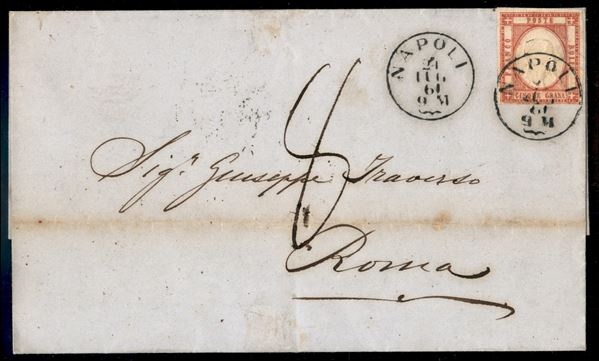 NAPOLI
21
LUG
61
9 M
FRANCO
POSTO
BOLLO
CINQUE GRANA
NAPOLI
61
9 M
5
Sigr. Giuseppe Traverso
Roma